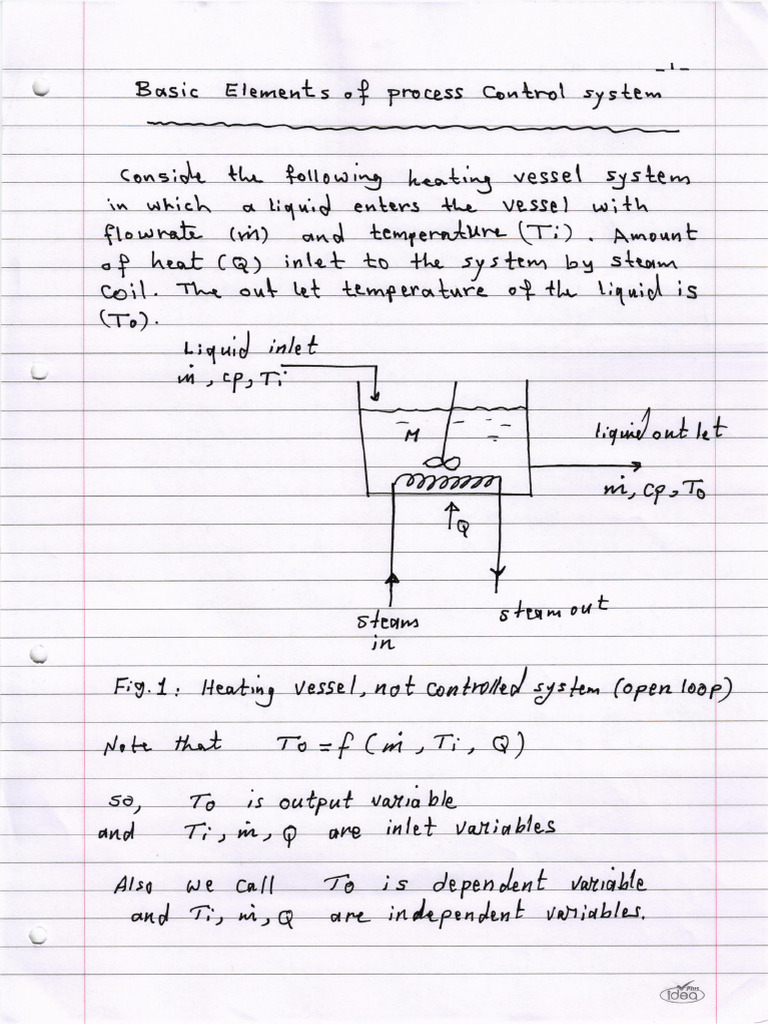 -1-
Basic Elements of process Control system
Conside the following heating vessel system
in which a liquid enters the vessel with
flowrate (ṁ) and temperature (Ti). Amount
of heat (Q) inlet to the system by steam
Coil. The out let temperature of the liquid is
(To).
Liquid inlet
ṁ, cp, Ti
M
liquid out let
ṁ, cp, To
Q
steam
in
steam out
Fig.1: Heating vessel, not controlled system (open loop)
Note that To = f (ṁ, Ti, Q)
so, To is output variable
and Ti, ṁ, Q are inlet variables
Also we call To is dependent variable
and Ti, ṁ, Q are independent variables.
Plus
idea